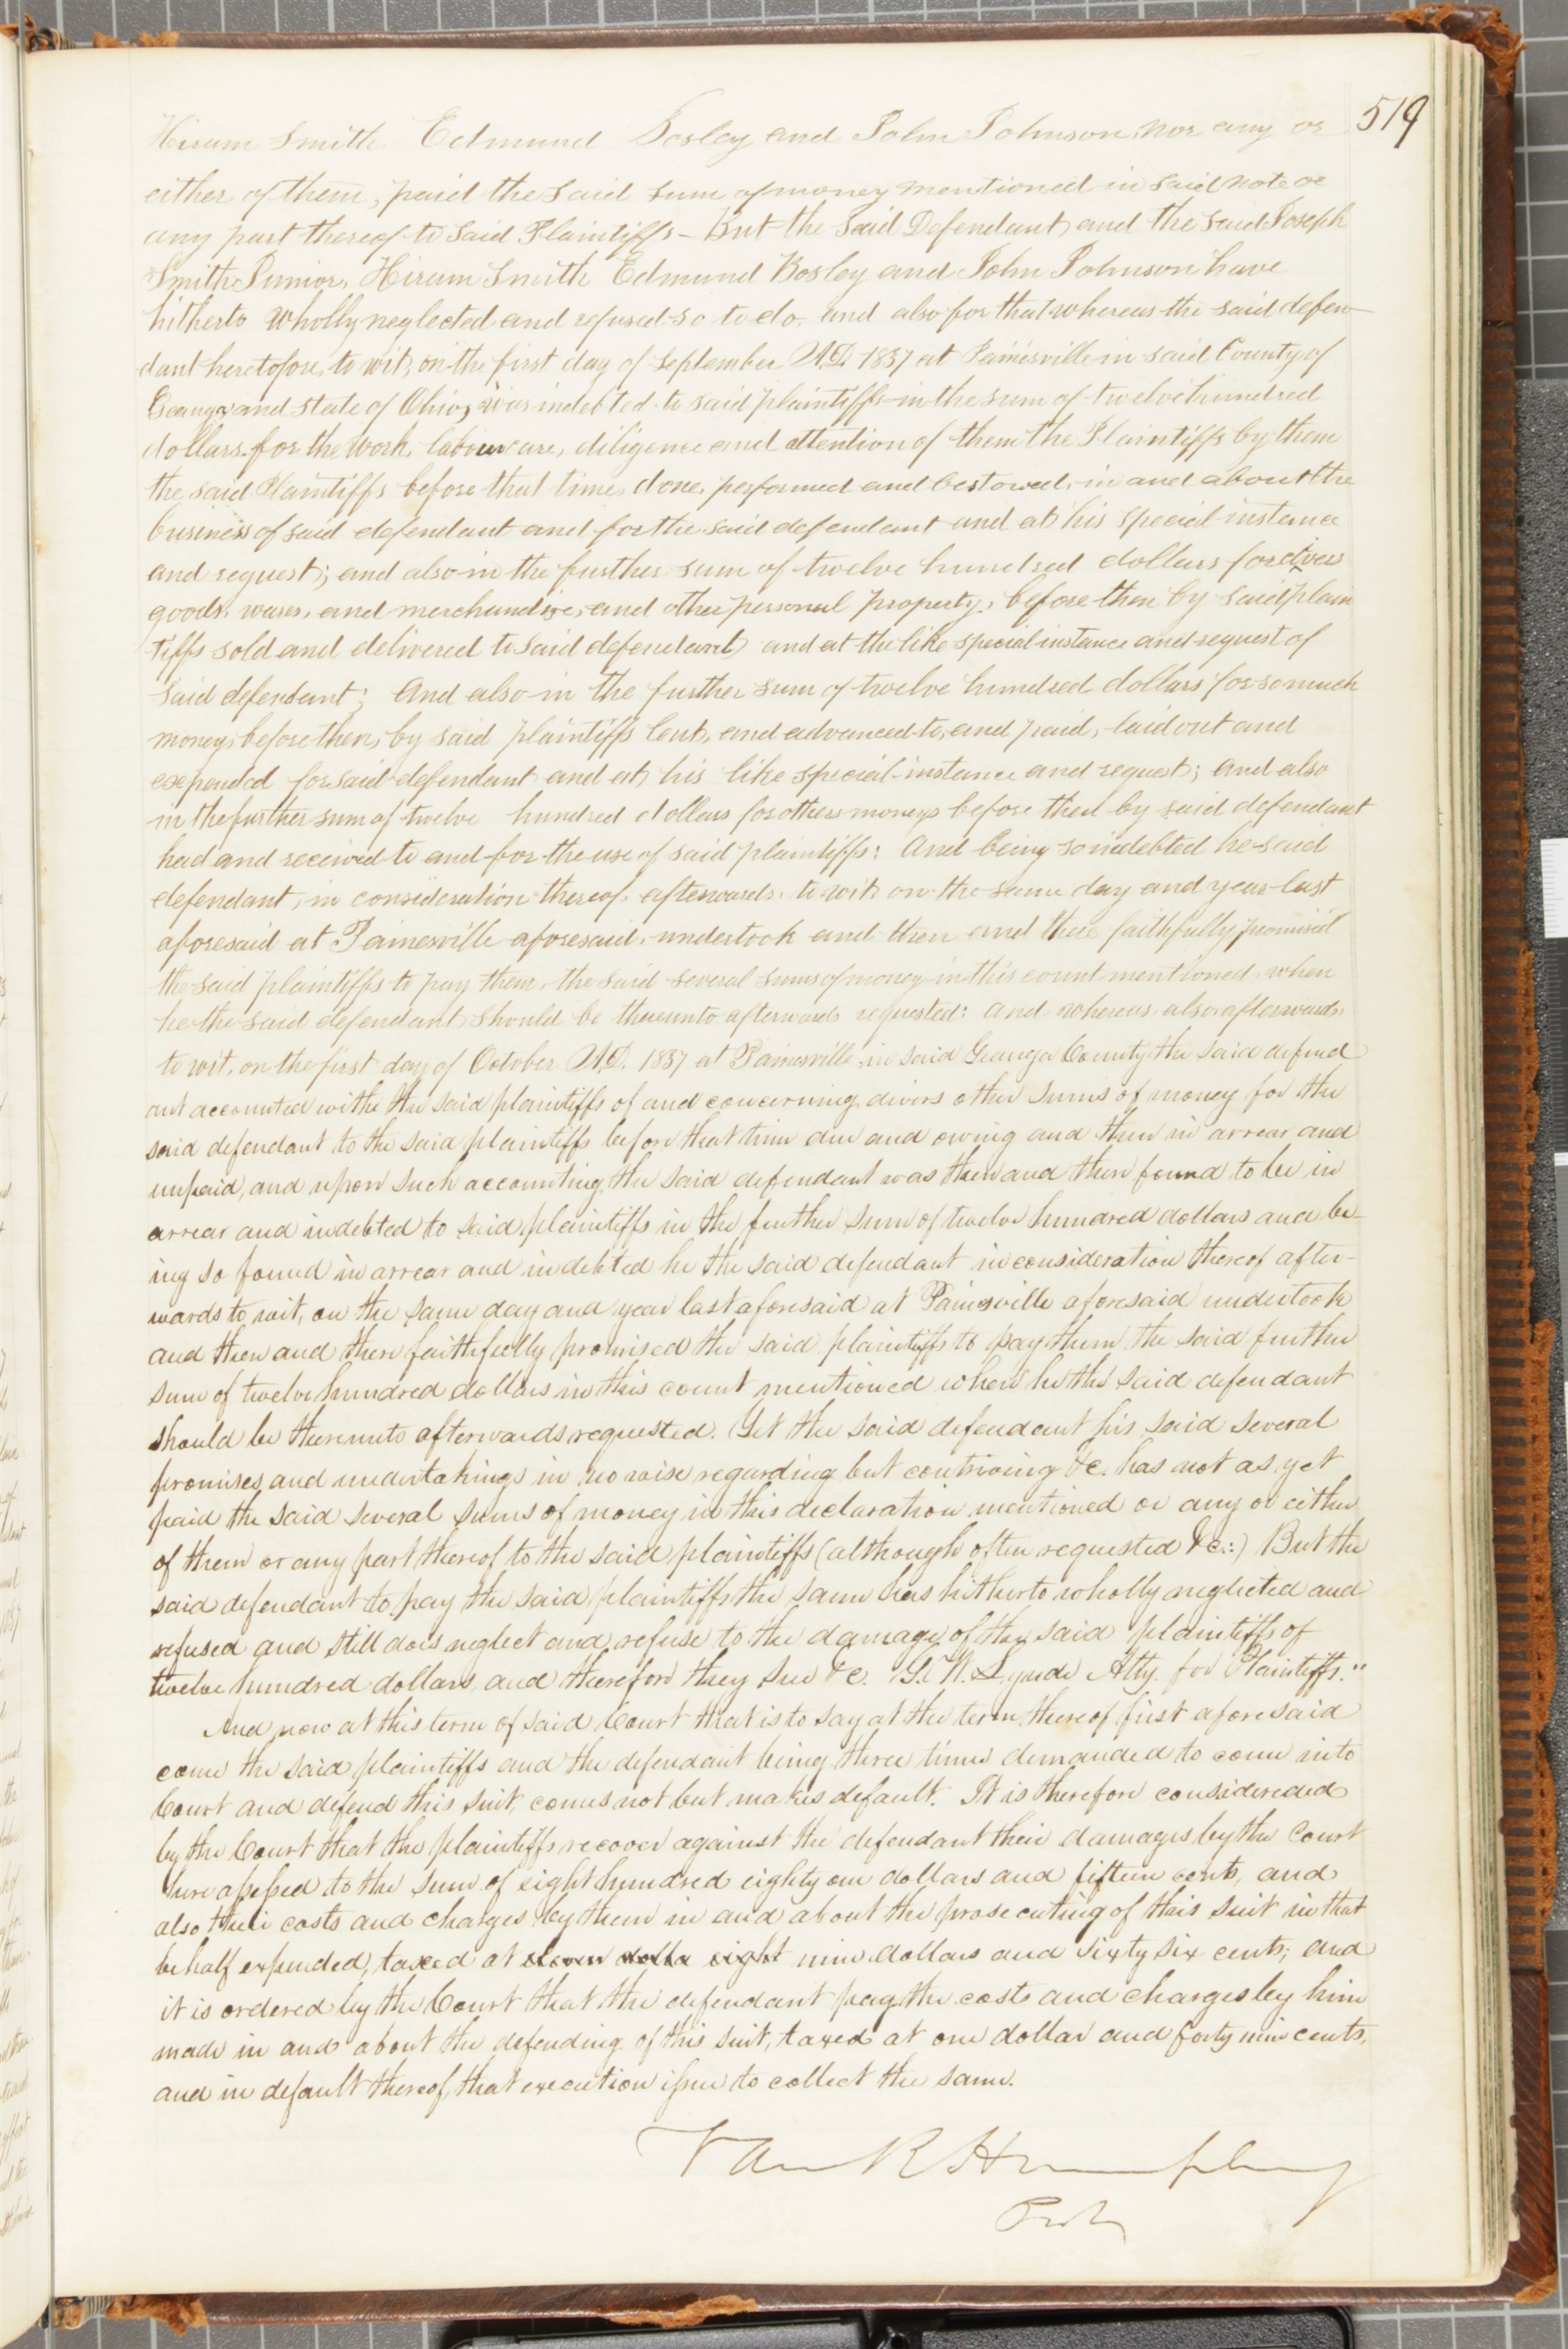 519
Hirum Smith Edmund Bosley and John Johnson, nor any or
either of them, paid the said sum of money mentioned in said note or
any part thereof to said Plaintiffs – But the said Defendant and the said Joseph
Smith Junior, Hirum Smith Edmund Bosley and John Johnson have
hitherto wholly neglected and refused so to do. and also for that whereas the said defen-
dant heretofore, to wit, on the first day of September A.D. 1837 at Painesville in said County of
Geauga and state of Ohio, was indebted to said plaintiffs in the sum of twelve hundred
dollars for the work, labour care, diligence and attention of them the Plaintiffs by them
the said Plaintiffs before that time, done, performed and bestowed, in and about the
business of said defendant and for the said defendant and at his special instance
and request; and also in the further sum of twelve hundred dollars for divers
goods, wares, and merchandise, and other personal property, before then by said plain
tiffs sold and delivered to said defendant and at the like special instance and request of
said defendant; And also in the further sum of twelve hundred dollars for so much
money, before then, by said plaintiffs lent, and advanced to, and paid, laid out and
expended for said defendant and at his like special instance and request; and also
in the further sum of twelve hundred dollars for other moneys before then by said defendant
had and received to and for the use of said plaintiffs: And being so indebted he said
defendant, in consideration thereof, afterwards, to wit, on the same day and year last
aforesaid at Painesville aforesaid, undertook and then and there faithfully promised
the said plaintiffs to pay them, the said several sums of money in this count mentioned, when
he the said defendant should be thereunto afterwards requested: and whereas, also afterwards,
to wit, on the first day of October A.D. 1837 at Painesville in said Geauga County the said defend
ant accounted withe the said plaintiffs of and concerning divers other sums of money for the
said defendant to the said plaintiffs before that time due and owing and then in arrear and
unpaid, and upon such accounting the said defendant was then and then found to be in
arrear and indebted to said plaintiffs in the further sum of twelve hundred dollars and be-
ing so found in arrear and indebted he the said defendant in consideration thereof after-
wards to wit, on the same day and year last aforesaid at Painesville aforesaid undertook
and then and there faithfully promised the said plaintiffs to pay them the said further
sum of twelve hundred dollars in this count mentioned when he the said defendant
should be thereunto afterwards requested. Yet the said defendant his said several
promises and undertakings in no wise regarding but contriving &c. has not as yet
paid the said several sums of money in this declaration mentioned or any or either
of them or any part thereof to the said plaintiffs (although often requested &c.:) But the
said defendant to pay the said plaintiffs the same has hitherto wholly neglected and
refused and still does neglect and refuse to the damage of the said plaintiffs of
twelve hundred dollars, and therefore they sue &c. G. W. Lynde Atty. for Plaintiffs."
And now at this term of said Court that is to say at the term thereof first aforesaid
come the said plaintiffs and the defendant being three times demanded to come into
Court and defend this suit, comes not but makes default. It is therefore considereded
by the Court that the plaintiffs recover against the defendant their damages by the Court
here assessed to the sum of eight hundred eighty one dollars and fifteen cents, and
also their costs and charges by them in and about the prosecuting of this suit in that
behalf expended, taxed at eleven dolla eight nine dollars and sixty six cents; and
it is ordered by the Court that the defendant pay the costs and charges by him
made in and about the defending of this suit, taxed at one dollar and forty nine cents,
and in default thereof, that execution issue to collect the same.
Van R Humphrey